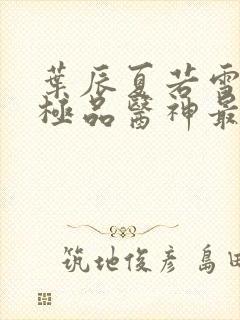 葉辰夏若雪
極品醫神最
筑地俊彥 島田